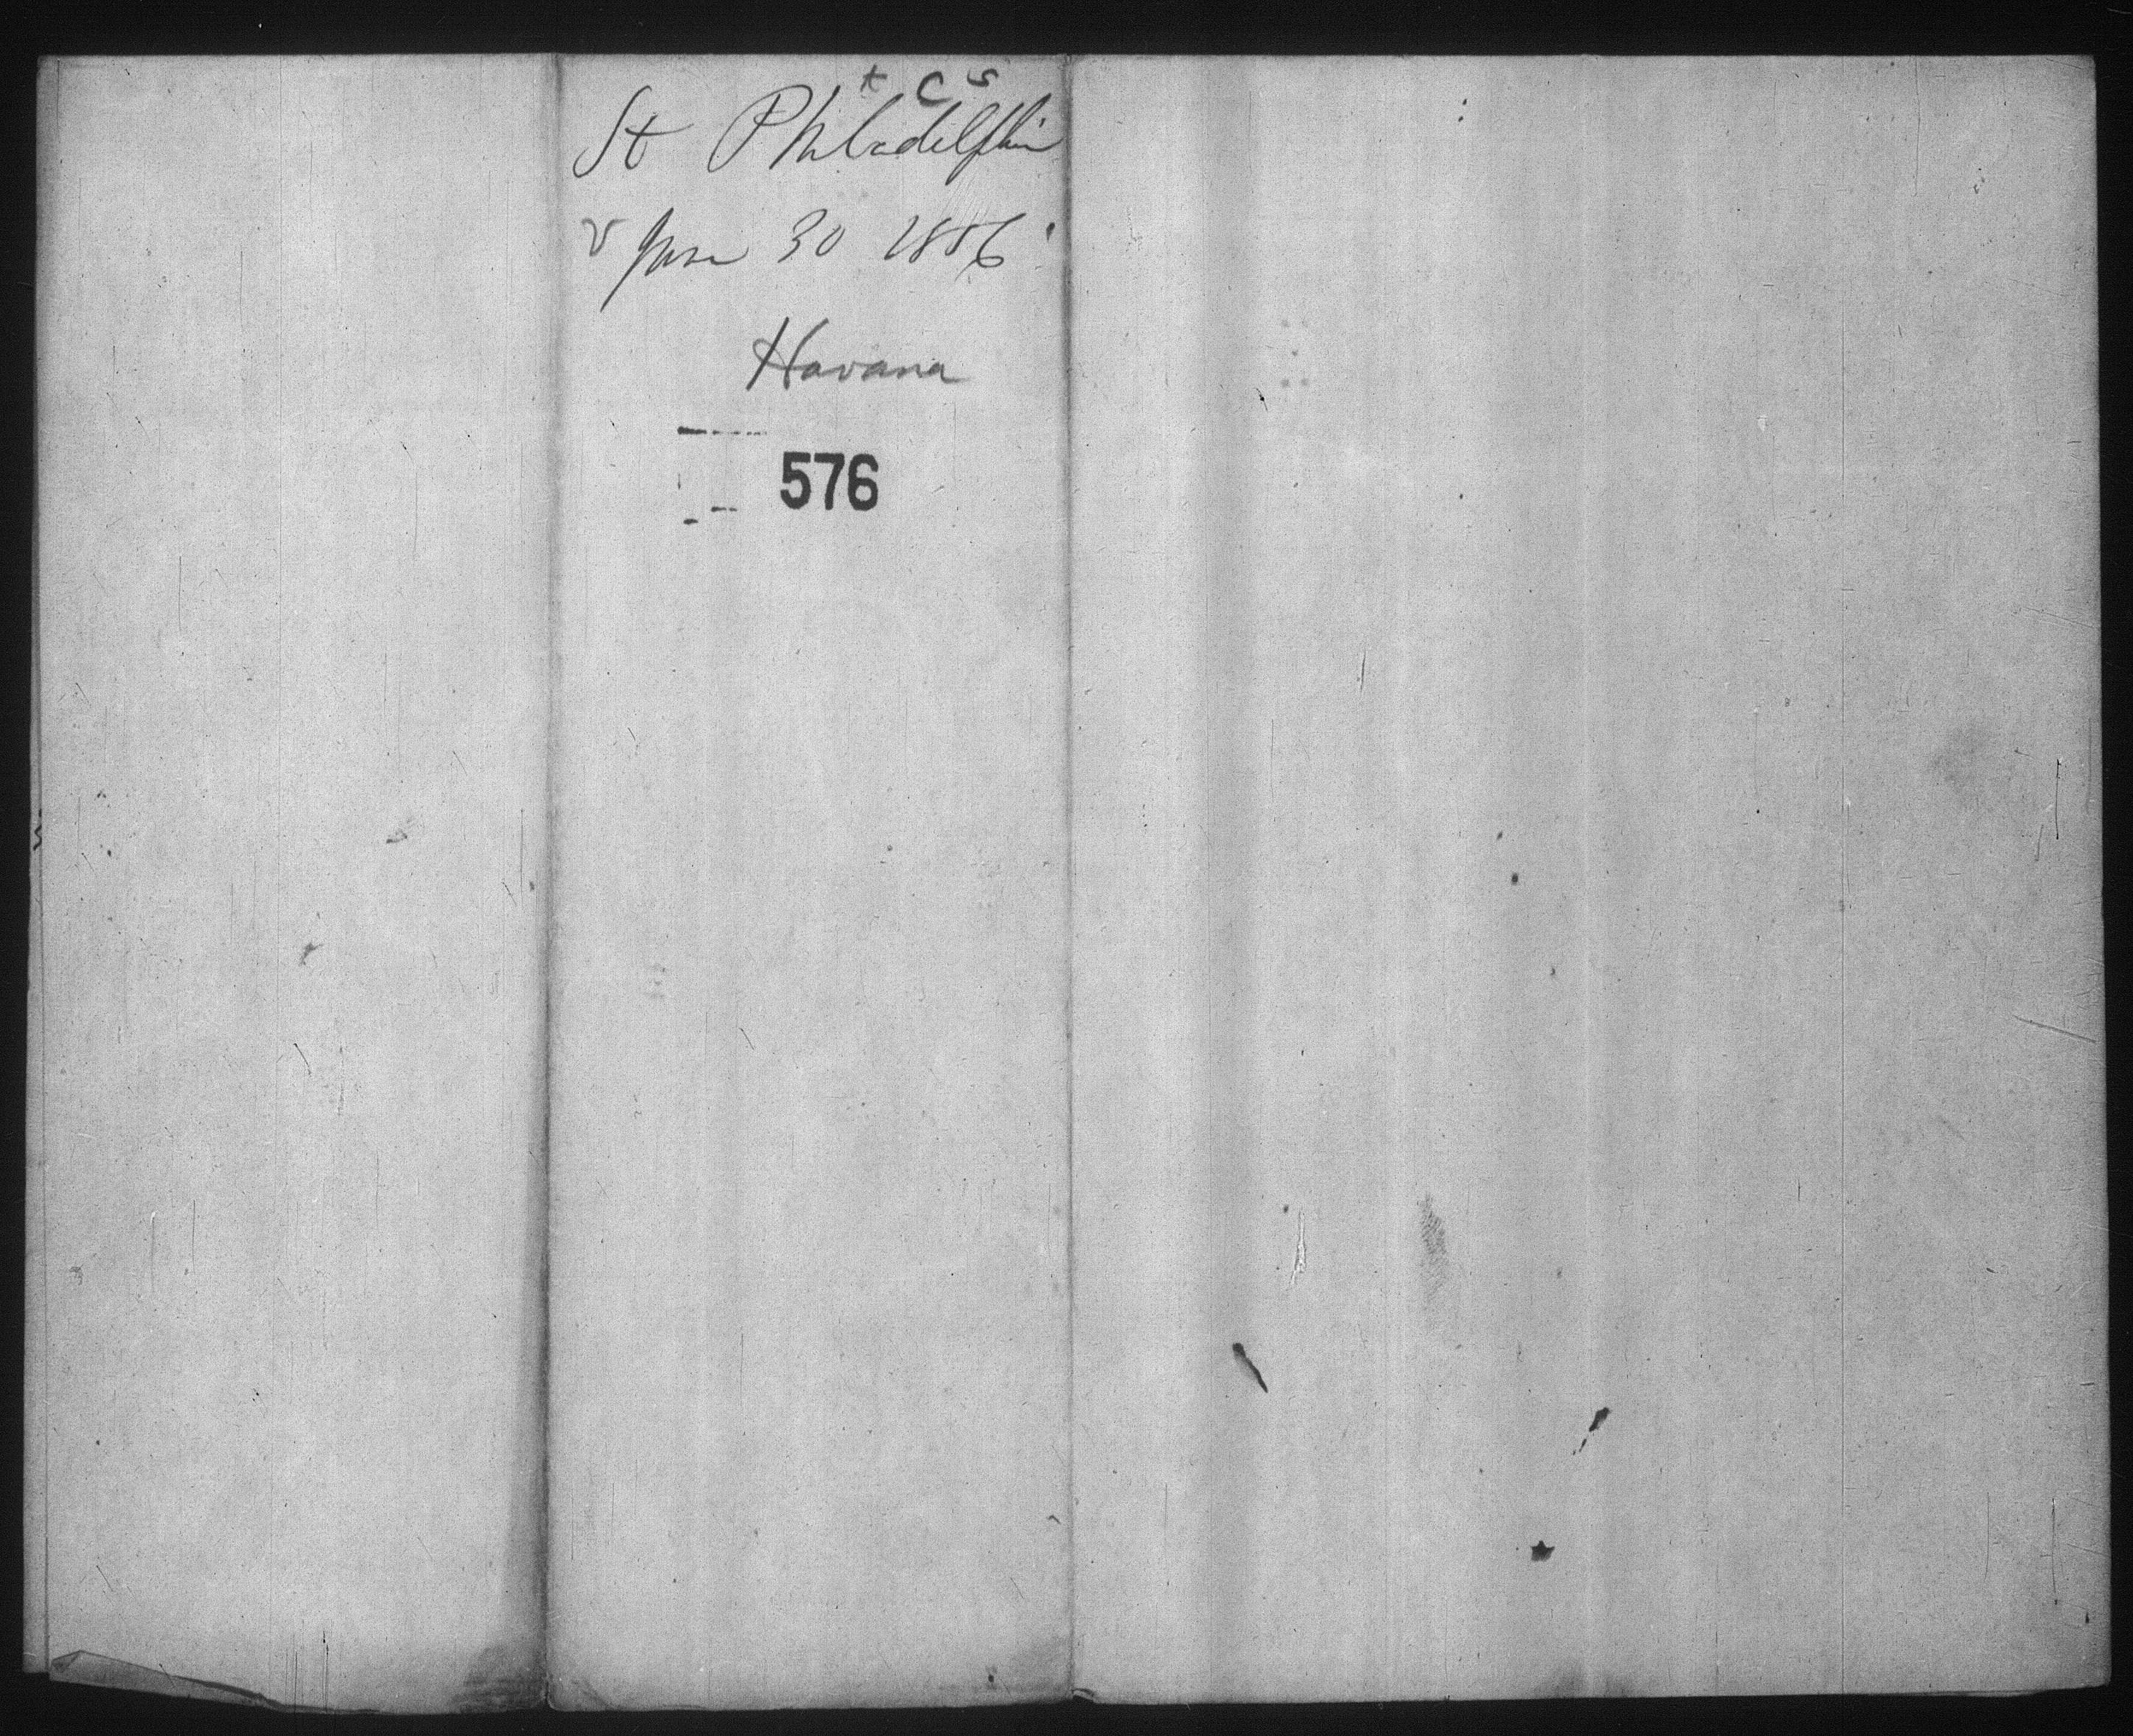 t C S
St Philadelphia
v June 30 1886
Havana
576